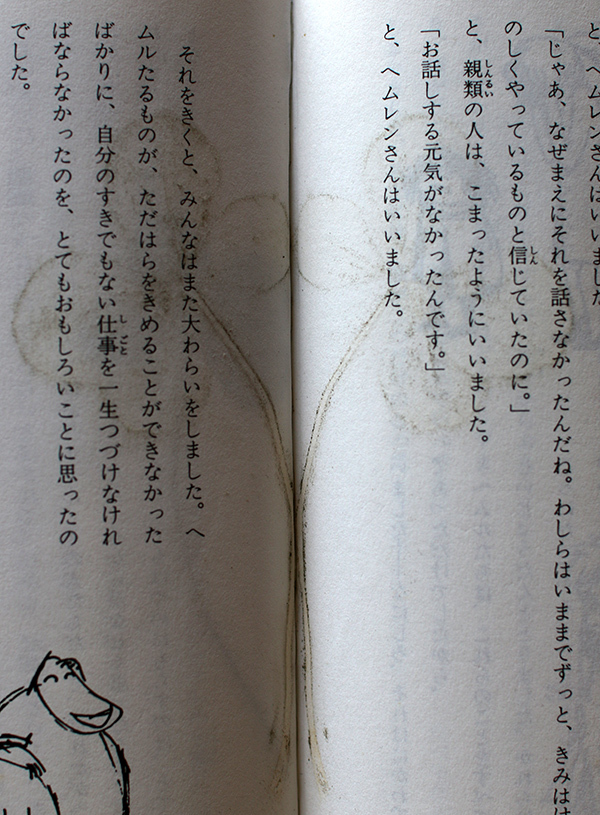 と、ヘムレンさんはいいました
「じゃあ、なぜまえにそれを話さなかったんだね。わしらはいままでずっと、きみは
のしくやっているものと信じていたのに。」
と、親類の人は、こまったようにいいました。
「お話しする元気がなかったんです。」
と、ヘムレンさんはいいました。
それをきくと、みんなはまた大わらいをしました。ヘ
ムルたるものが、ただはらをきめることができなかった
ばかりに、自分のすきでもない仕事を一生つづけなけれ
ばならなかったのを、とてもおもしろいことに思ったの
でした。